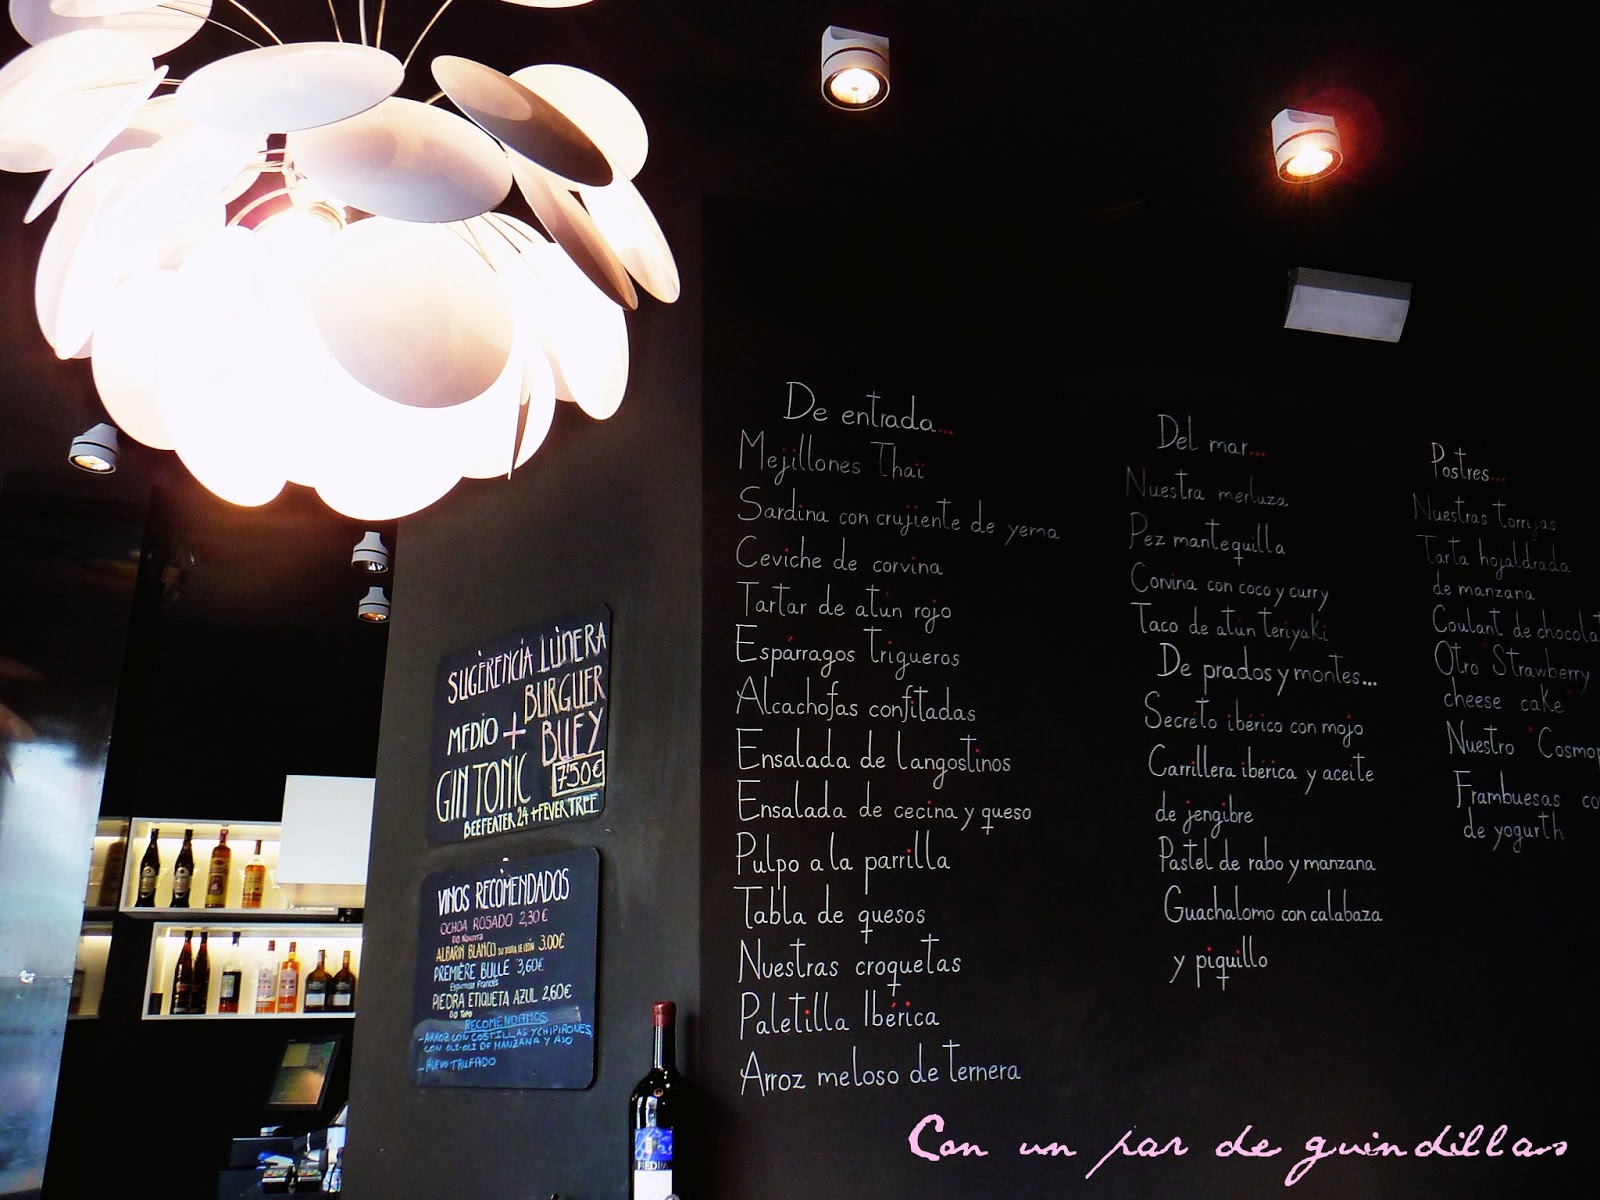 De entrada...
Mejillones Thaï
Sardina con crujiente de yema
Ceviche de corvina
Tartar de atún rojo
Espárragos trigueros
Alcachofas confitadas
Ensalada de langostinos
Ensalada de cecina y queso
Pulpo a la parrilla
Tabla de quesos
Nuestras croquetas
Paletilla Ibérica
Arroz meloso de ternera
Del mar...
Nuestra merluza
Pez mantequilla
Corvina con coco y curry
Taco de atún teriyaki
De prados y montes...
Secreto ibérico con mojo
Carrillera ibérica y aceite
de jengibre
Pastel de rabo y manzana
Guachalomo con calabaza
y piquillo
Postres...
Nuestras torrijas
Tarta hojaldrada
de manzana
Coulant de chocolat
Otro "Strawberry
cheese cake"
Nuestro "Cosmop
Frambuesas co
de yogurth
SUGERENCIA LÙNERA
BURGUER
MEDIO + BUEY
GIN TONIC 7'50€
BEEFEATER 24 + FEVER TREE
VINOS RECOMENDADOS
OCHOA ROSADO 2,30€
DO Navarra
ALBARIN BLANCO DO TIERRA DE LEÓN 3.00€
PREMIÈRE BULLE 3,60€
Espumoso Francés
PIEDRA ETIQUETA AZUL 2,60€
DO Toro
RECOMENDAMOS
-ARROZ CON COSTILLAS Y CHIPIRONES
CON ALI-OLI DE MANZANA Y AJO
-HUEVO TRUFADO
PIEDRA
Con un par de guindillas